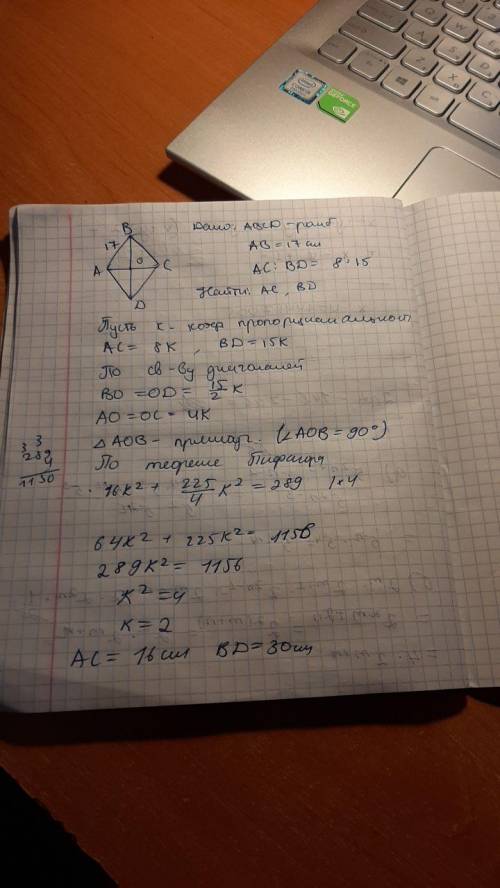 intel
CORE i5
GEFORCE
B
17
A
O
C
D
Дано: ABCD - ромб
AB = 17 см
AC : BD = 8 : 15
Найти: AC, BD
Пусть к - коэф пропорциональност
AC = 8K, BD = 15K
По св-ву диагоналей
BO = OD = 15/2 K
AO = OC = 4K
△AOB - прямоуг. (∠AOB = 90°)
По теореме Пифагора
16K² + 225/4 K² = 289 | × 4
3 3
289
4
1150
64K² + 225K² = 1156
289K² = 1156
K² = 4
K = 2
AC = 16 см BD = 30 см